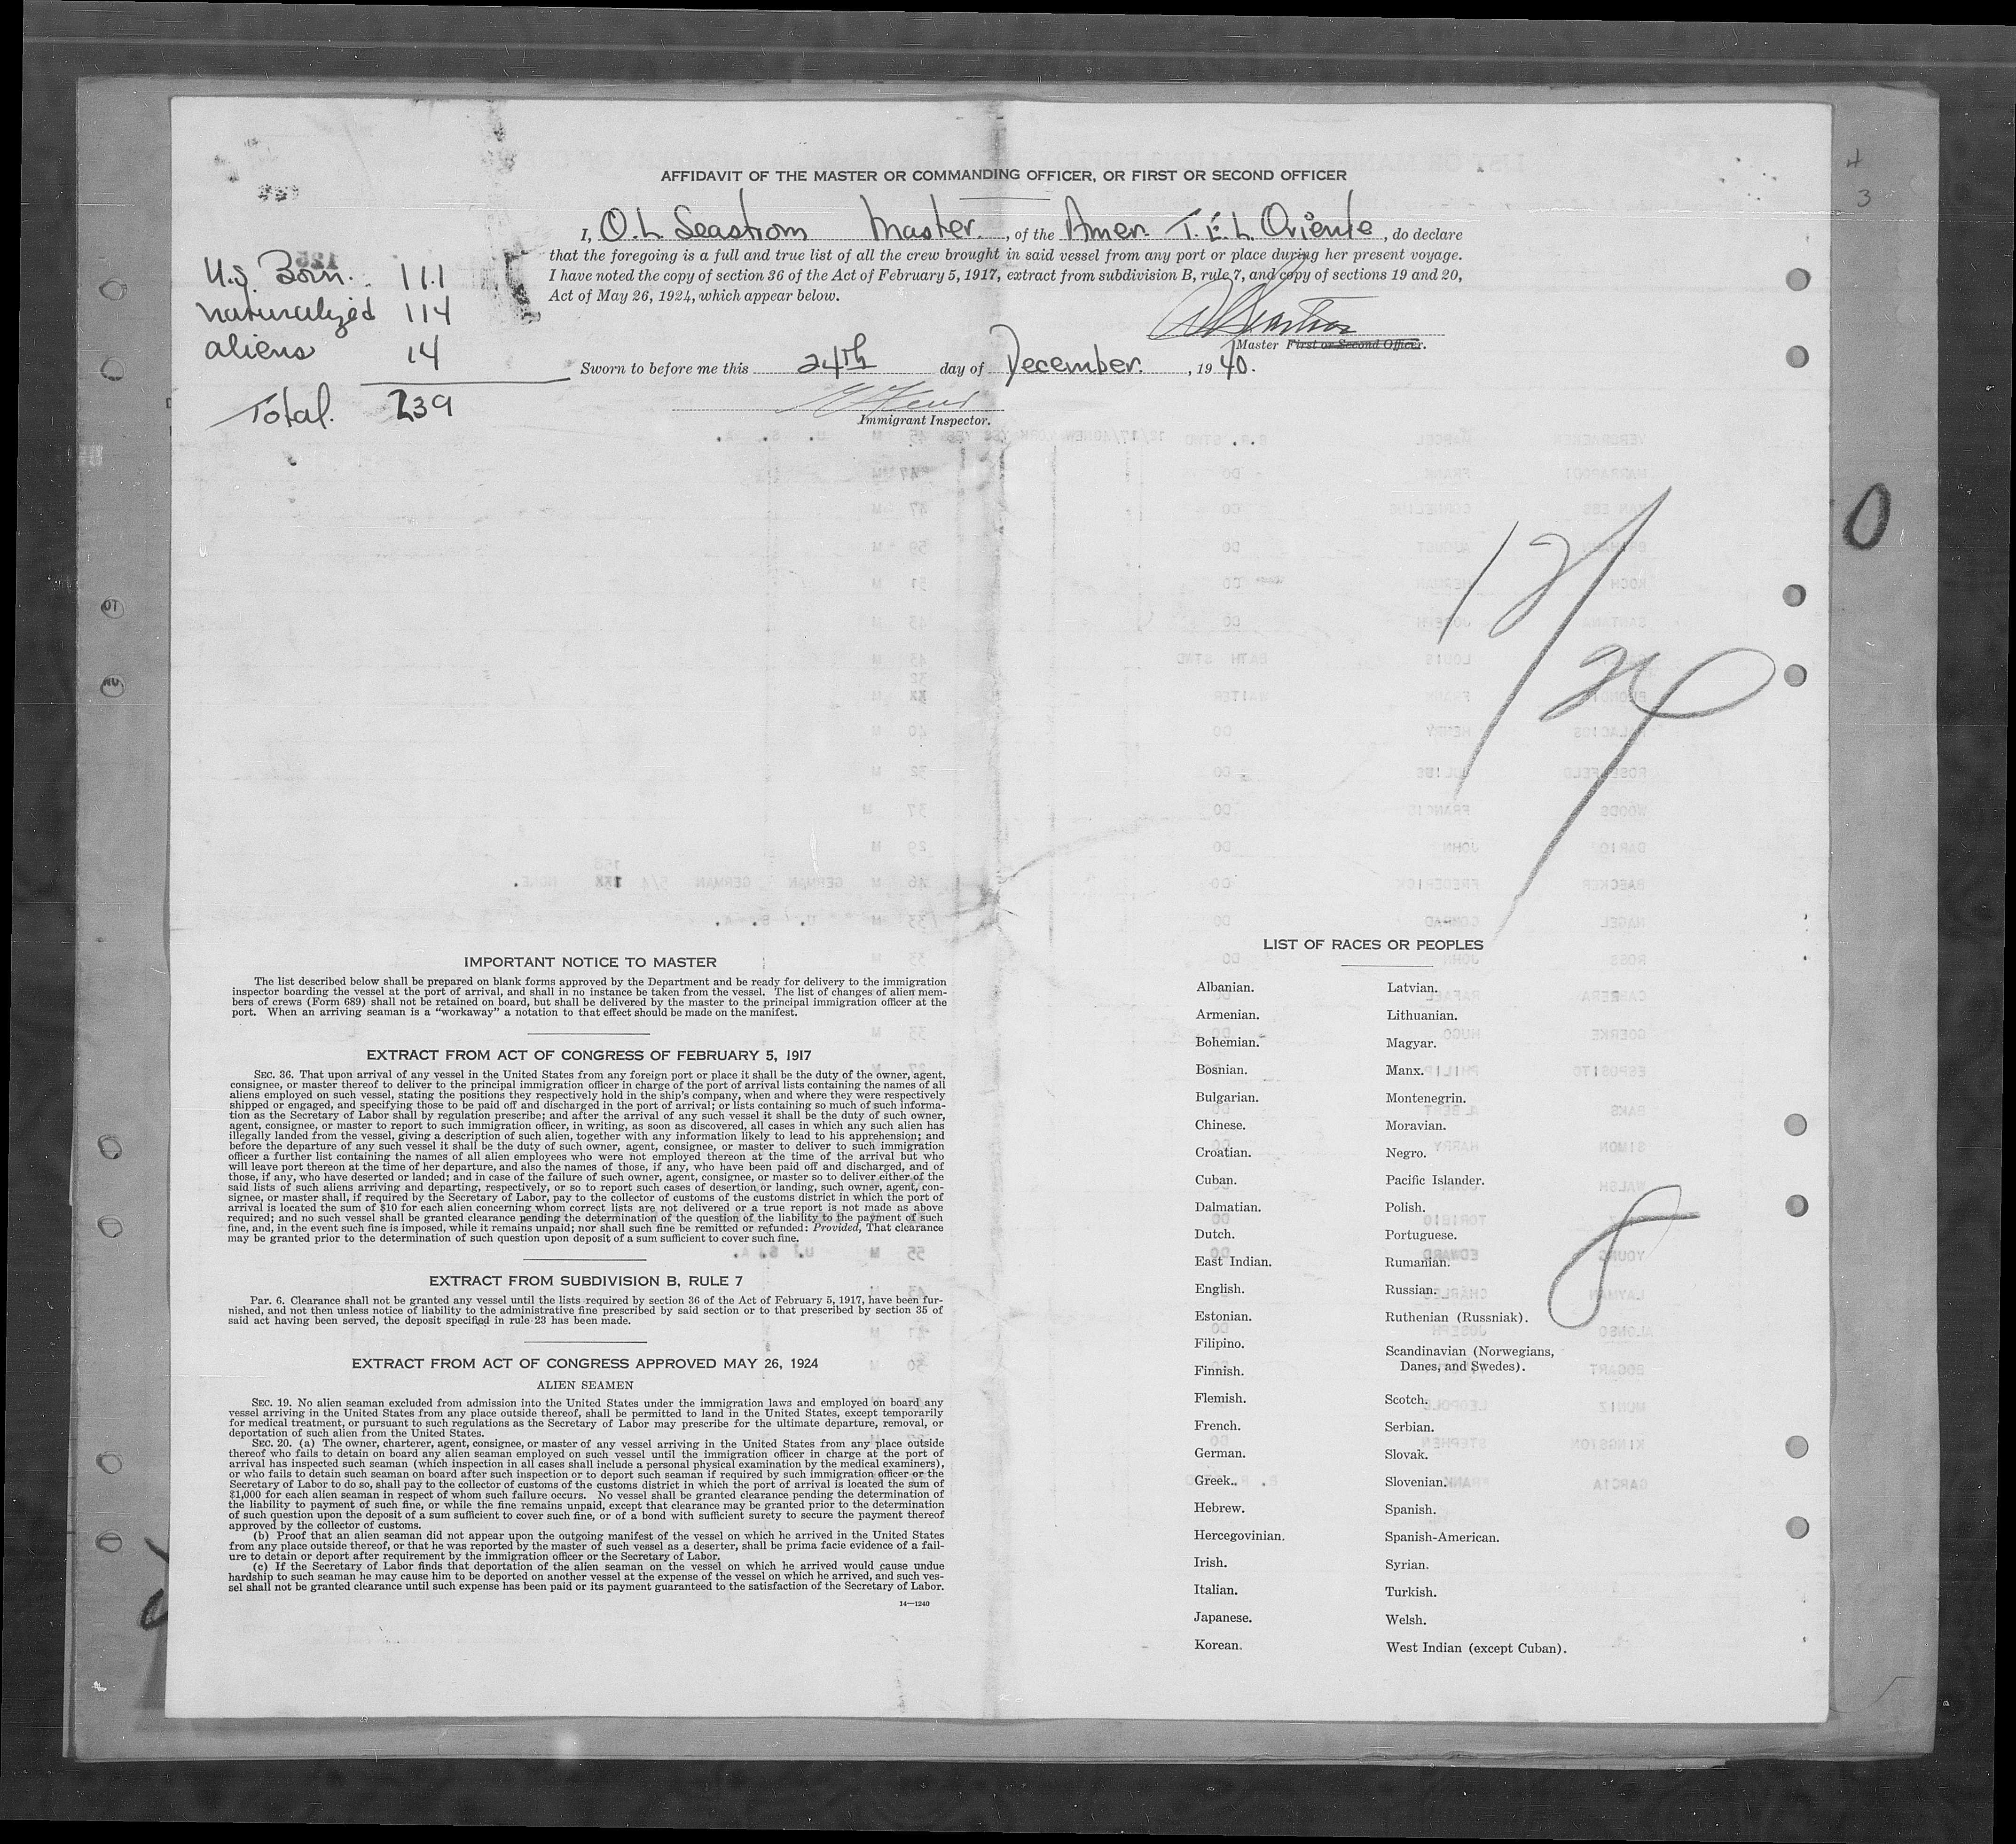 AFFIDAVIT OF THE MASTER OR COMMANDING OFFICER, OR FIRST OR SECOND OFFICER
I, O.L. Seastrom Master, of the Amer. T.E.L. Oriente, do declare
that the foregoing is a full and true list of all the crew brought in said vessel from any port or place during her present voyage.
I have noted the copy of section 36 of the Act of February 5, 1917, extract from subdivision B, rule 7, and copy of sections 19 and 20,
Act of May 26, 1924, which appear below.
U.S. Born. 111
naturalized 114
aliens 14
Total. 239
Master First or Second Officer.
Sworn to before me this 24th day of December, 1940.
Immigrant Inspector.
4
3
0
12/24
8
IMPORTANT NOTICE TO MASTER
The list described below shall be prepared on blank forms approved by the Department and be ready for delivery to the immigration
inspector boarding the vessel at the port of arrival, and shall in no instance be taken from the vessel. The list of changes of alien mem-
bers of crews (Form 689) shall not be retained on board, but shall be delivered by the master to the principal immigration officer at the
port. When an arriving seaman is a "workaway" a notation to that effect should be made on the manifest.
EXTRACT FROM ACT OF CONGRESS OF FEBRUARY 5, 1917
SEC. 36. That upon arrival of any vessel in the United States from any foreign port or place it shall be the duty of the owner, agent,
consignee, or master thereof to deliver to the principal immigration officer in charge of the port of arrival lists containing the names of all
aliens employed on such vessel, stating the positions they respectively hold in the ship's company, when and where they were respectively
shipped or engaged, and specifying those to be paid off and discharged in the port of arrival; or lists containing so much of such informa-
tion as the Secretary of Labor shall by regulation prescribe; and after the arrival of any such vessel it shall be the duty of such owner,
agent, consignee, or master to report to such immigration officer, in writing, as soon as discovered, all cases in which any such alien has
illegally landed from the vessel, giving a description of such alien, together with any information likely to lead to his apprehension; and
before the departure of any such vessel it shall be the duty of such owner, agent, consignee, or master to deliver to such immigration
officer a further list containing the names of all alien employees who were not employed thereon at the time of the arrival but who
will leave port thereon at the time of her departure, and also the names of those, if any, who have been paid off and discharged, and of
those, if any, who have deserted or landed; and in case of the failure of such owner, agent, consignee, or master so to deliver either of the
said lists of such aliens arriving and departing, respectively, or so to report such cases of desertion or landing, such owner, agent, con-
signee, or master shall, if required by the Secretary of Labor, pay to the collector of customs of the customs district in which the port of
arrival is located the sum of $10 for each alien concerning whom correct lists are not delivered or a true report is not made as above
required; and no such vessel shall be granted clearance pending the determination of the question of the liability to the payment of such
fine, and, in the event such fine is imposed, while it remains unpaid; nor shall such fine be remitted or refunded: Provided, That clearance
may be granted prior to the determination of such question upon deposit of a sum sufficient to cover such fine.
EXTRACT FROM SUBDIVISION B, RULE 7
Par. 6. Clearance shall not be granted any vessel until the lists required by section 36 of the Act of February 5, 1917, have been fur-
nished, and not then unless notice of liability to the administrative fine prescribed by said section or to that prescribed by section 35 of
said act having been served, the deposit specified in rule 23 has been made.
EXTRACT FROM ACT OF CONGRESS APPROVED MAY 26, 1924
ALIEN SEAMEN
SEC. 19. No alien seaman excluded from admission into the United States under the immigration laws and employed on board any
vessel arriving in the United States from any place outside thereof, shall be permitted to land in the United States, except temporarily
for medical treatment, or pursuant to such regulations as the Secretary of Labor may prescribe for the ultimate departure, removal, or
deportation of such alien from the United States.
SEC. 20. (a) The owner, charterer, agent, consignee, or master of any vessel arriving in the United States from any place outside
thereof who fails to detain on board any alien seaman employed on such vessel until the immigration officer in charge at the port of
arrival has inspected such seaman (which inspection in all cases shall include a personal physical examination by the medical examiners),
or who fails to detain such seaman on board after such inspection or to deport such seaman if required by such immigration officer or the
Secretary of Labor to do so, shall pay to the collector of customs of the customs district in which the port of arrival is located the sum of
$1,000 for each alien seaman in respect of whom such failure occurs. No vessel shall be granted clearance pending the determination of
the liability to payment of such fine, or while the fine remains unpaid, except that clearance may be granted prior to the determination
of such question upon the deposit of a sum sufficient to cover such fine, or of a bond with sufficient surety to secure the payment thereof
approved by the collector of customs.
(b) Proof that an alien seaman did not appear upon the outgoing manifest of the vessel on which he arrived in the United States
from any place outside thereof, or that he was reported by the master of such vessel as a deserter, shall be prima facie evidence of a fail-
ure to detain or deport after requirement by the immigration officer or the Secretary of Labor.
(c) If the Secretary of Labor finds that deportation of the alien seaman on the vessel on which he arrived would cause undue
hardship to such seaman he may cause him to be deported on another vessel at the expense of the vessel on which he arrived, and such ves-
sel shall not be granted clearance until such expense has been paid or its payment guaranteed to the satisfaction of the Secretary of Labor.
14—1240
LIST OF RACES OR PEOPLES
Albanian.
Armenian.
Bohemian.
Bosnian.
Bulgarian.
Chinese.
Croatian.
Cuban.
Dalmatian.
Dutch.
East Indian.
English.
Estonian.
Filipino.
Finnish.
Flemish.
French.
German.
Greek.
Hebrew.
Hercegovinian.
Irish.
Italian.
Japanese.
Korean.
Latvian.
Lithuanian.
Magyar.
Manx.
Montenegrin.
Moravian.
Negro.
Pacific Islander.
Polish.
Portuguese.
Rumanian.
Russian.
Ruthenian (Russniak).
Scandinavian (Norwegians,
Danes, and Swedes).
Scotch.
Serbian.
Slovak.
Slovenian.
Spanish.
Spanish-American.
Syrian.
Turkish.
Welsh.
West Indian (except Cuban).